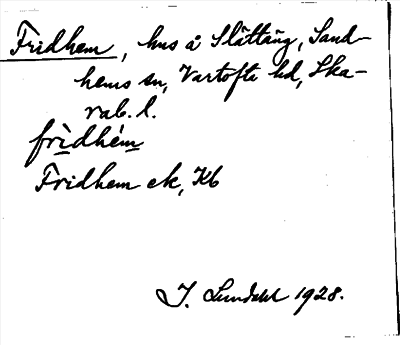 Fridhem, hus å Slättäng, Sand-
hems sn, Vartofta hd, Ska-
rab. l.
frìdhém
Fridhem ek, Kb
I. Lundahl 1928.